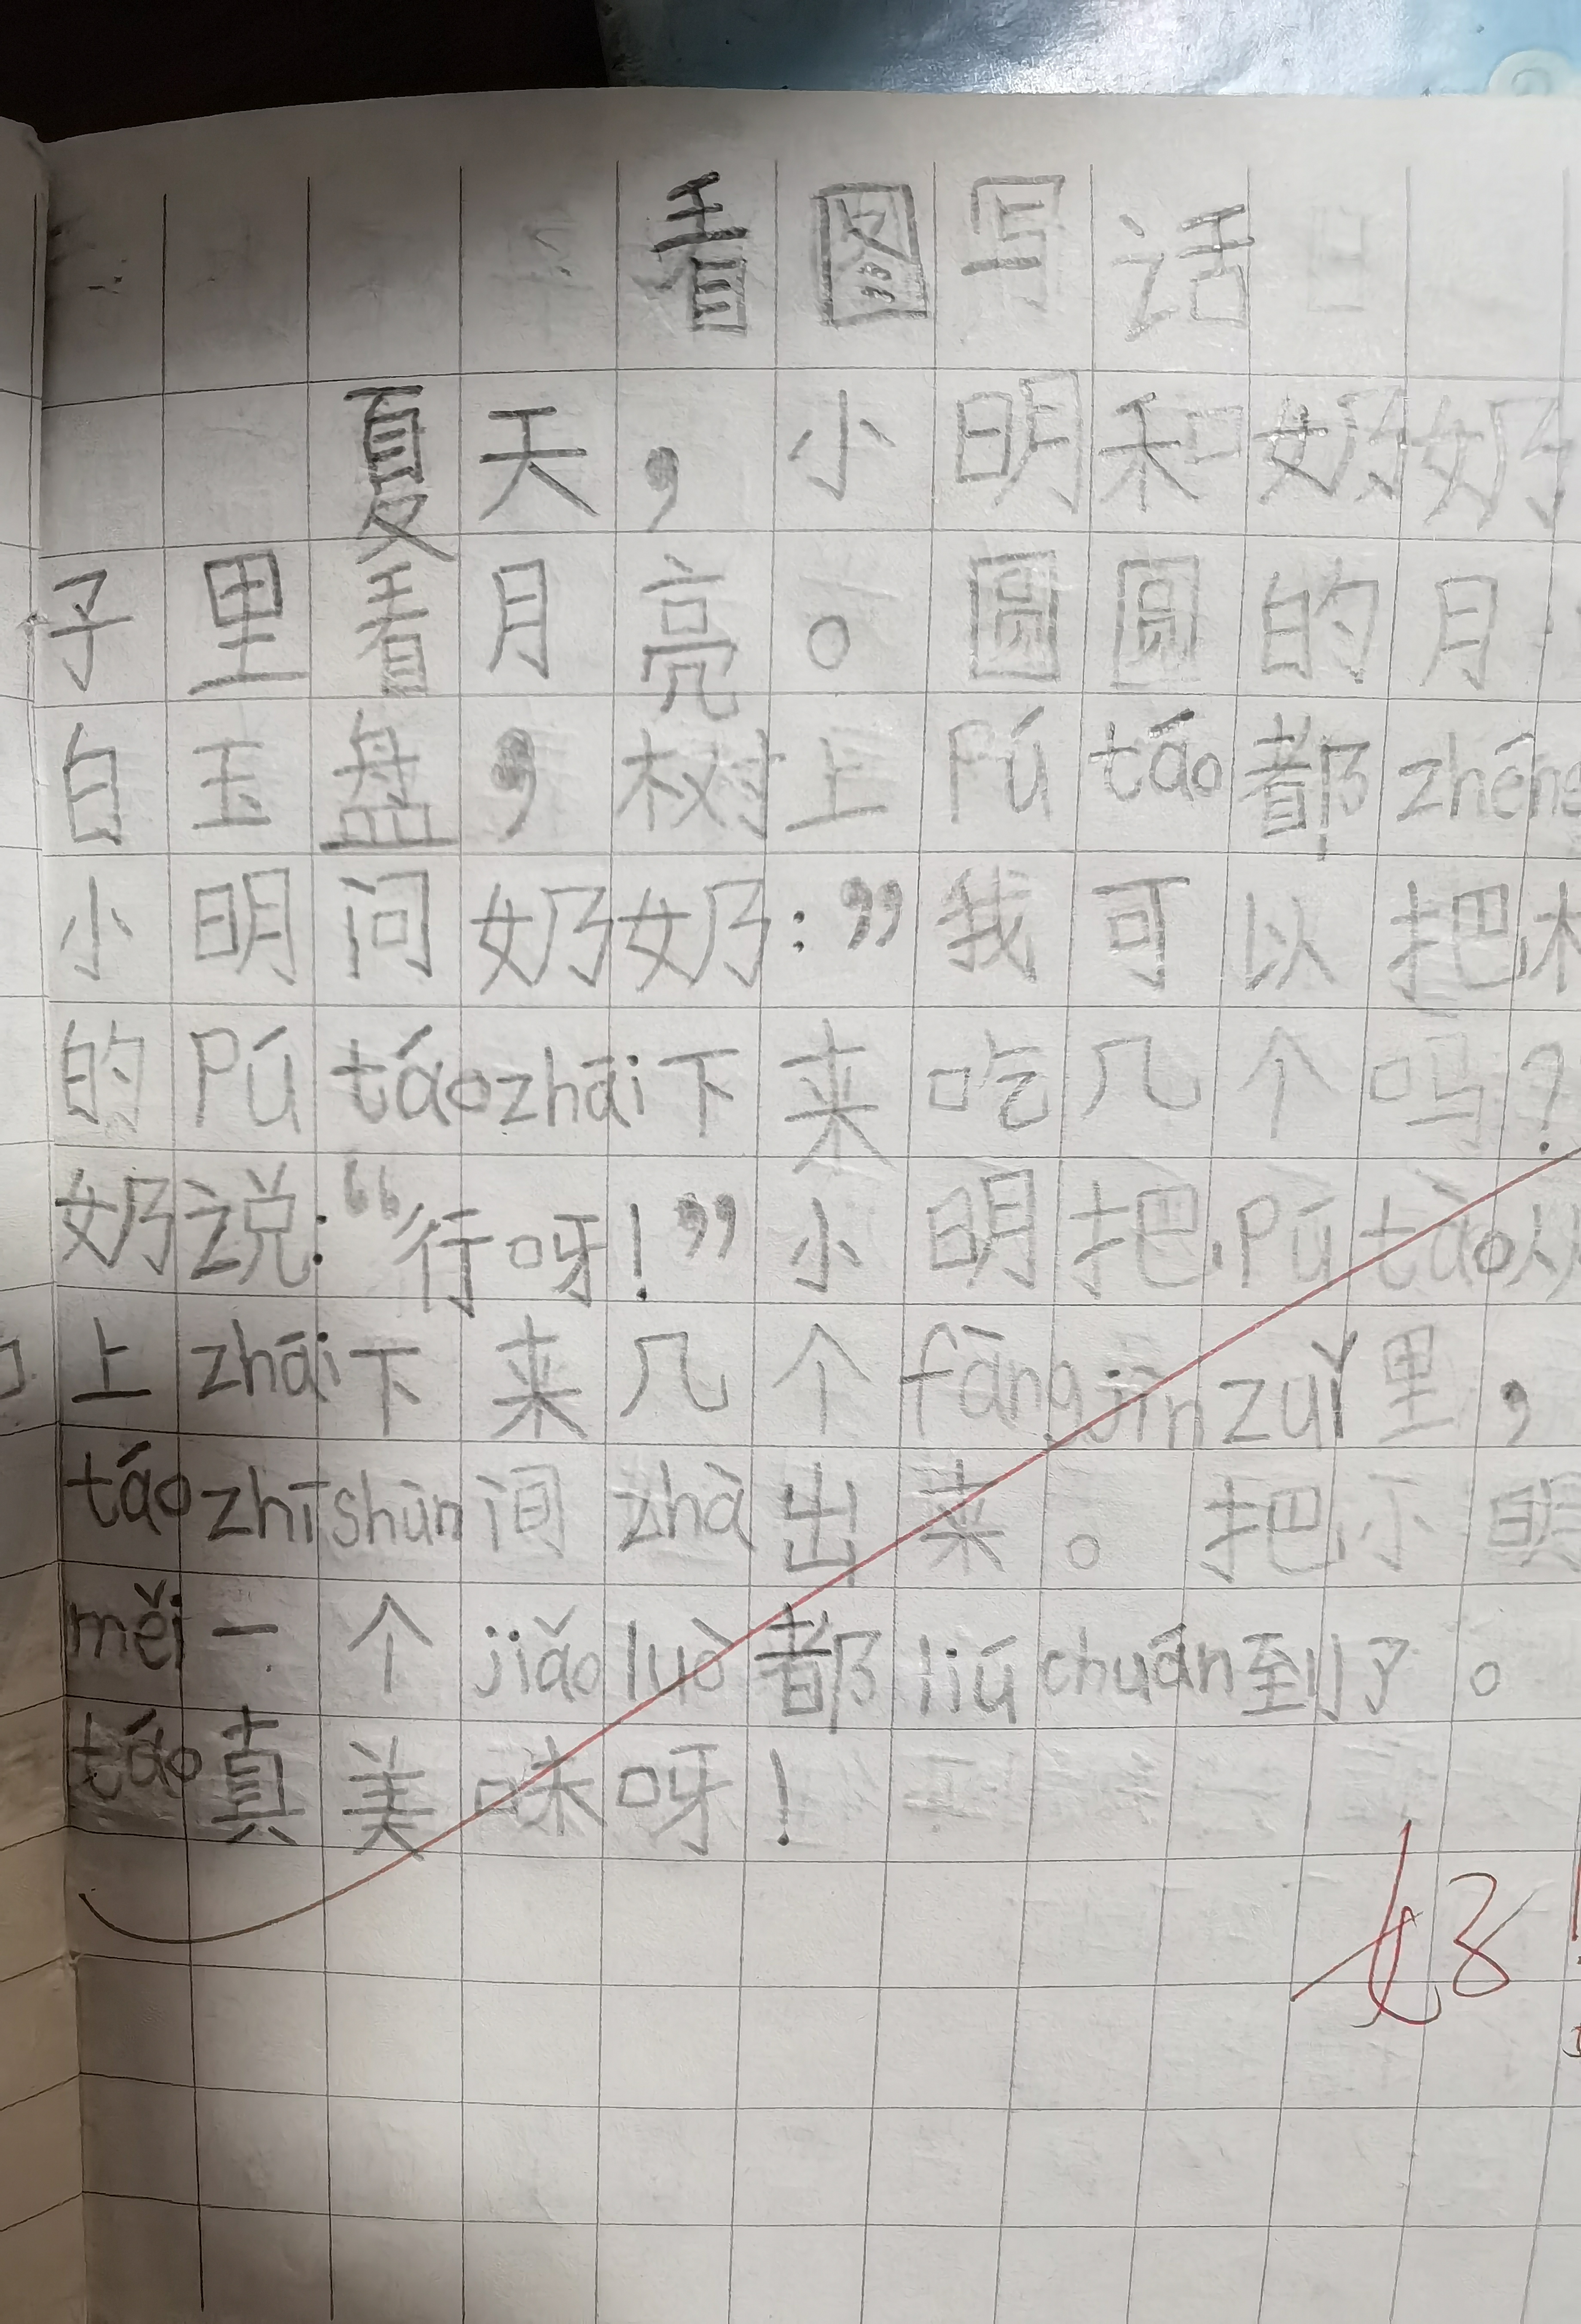 看图写话
夏天，小明和奶奶
子里看月亮。圆圆的月
白玉盘，树上Pú táo都zhēng
小明问奶奶：”我可以把
的Pú táo zhāi下来吃几个吗？
奶说：“行呀！”小明把Pú táo从
上zhāi下来几个fàng jìn zuǐ里，
táo zhī shùn间zhà出来。把小明
měi一个jiǎo luò都liú chuán到了。
táo真美味呀！
好